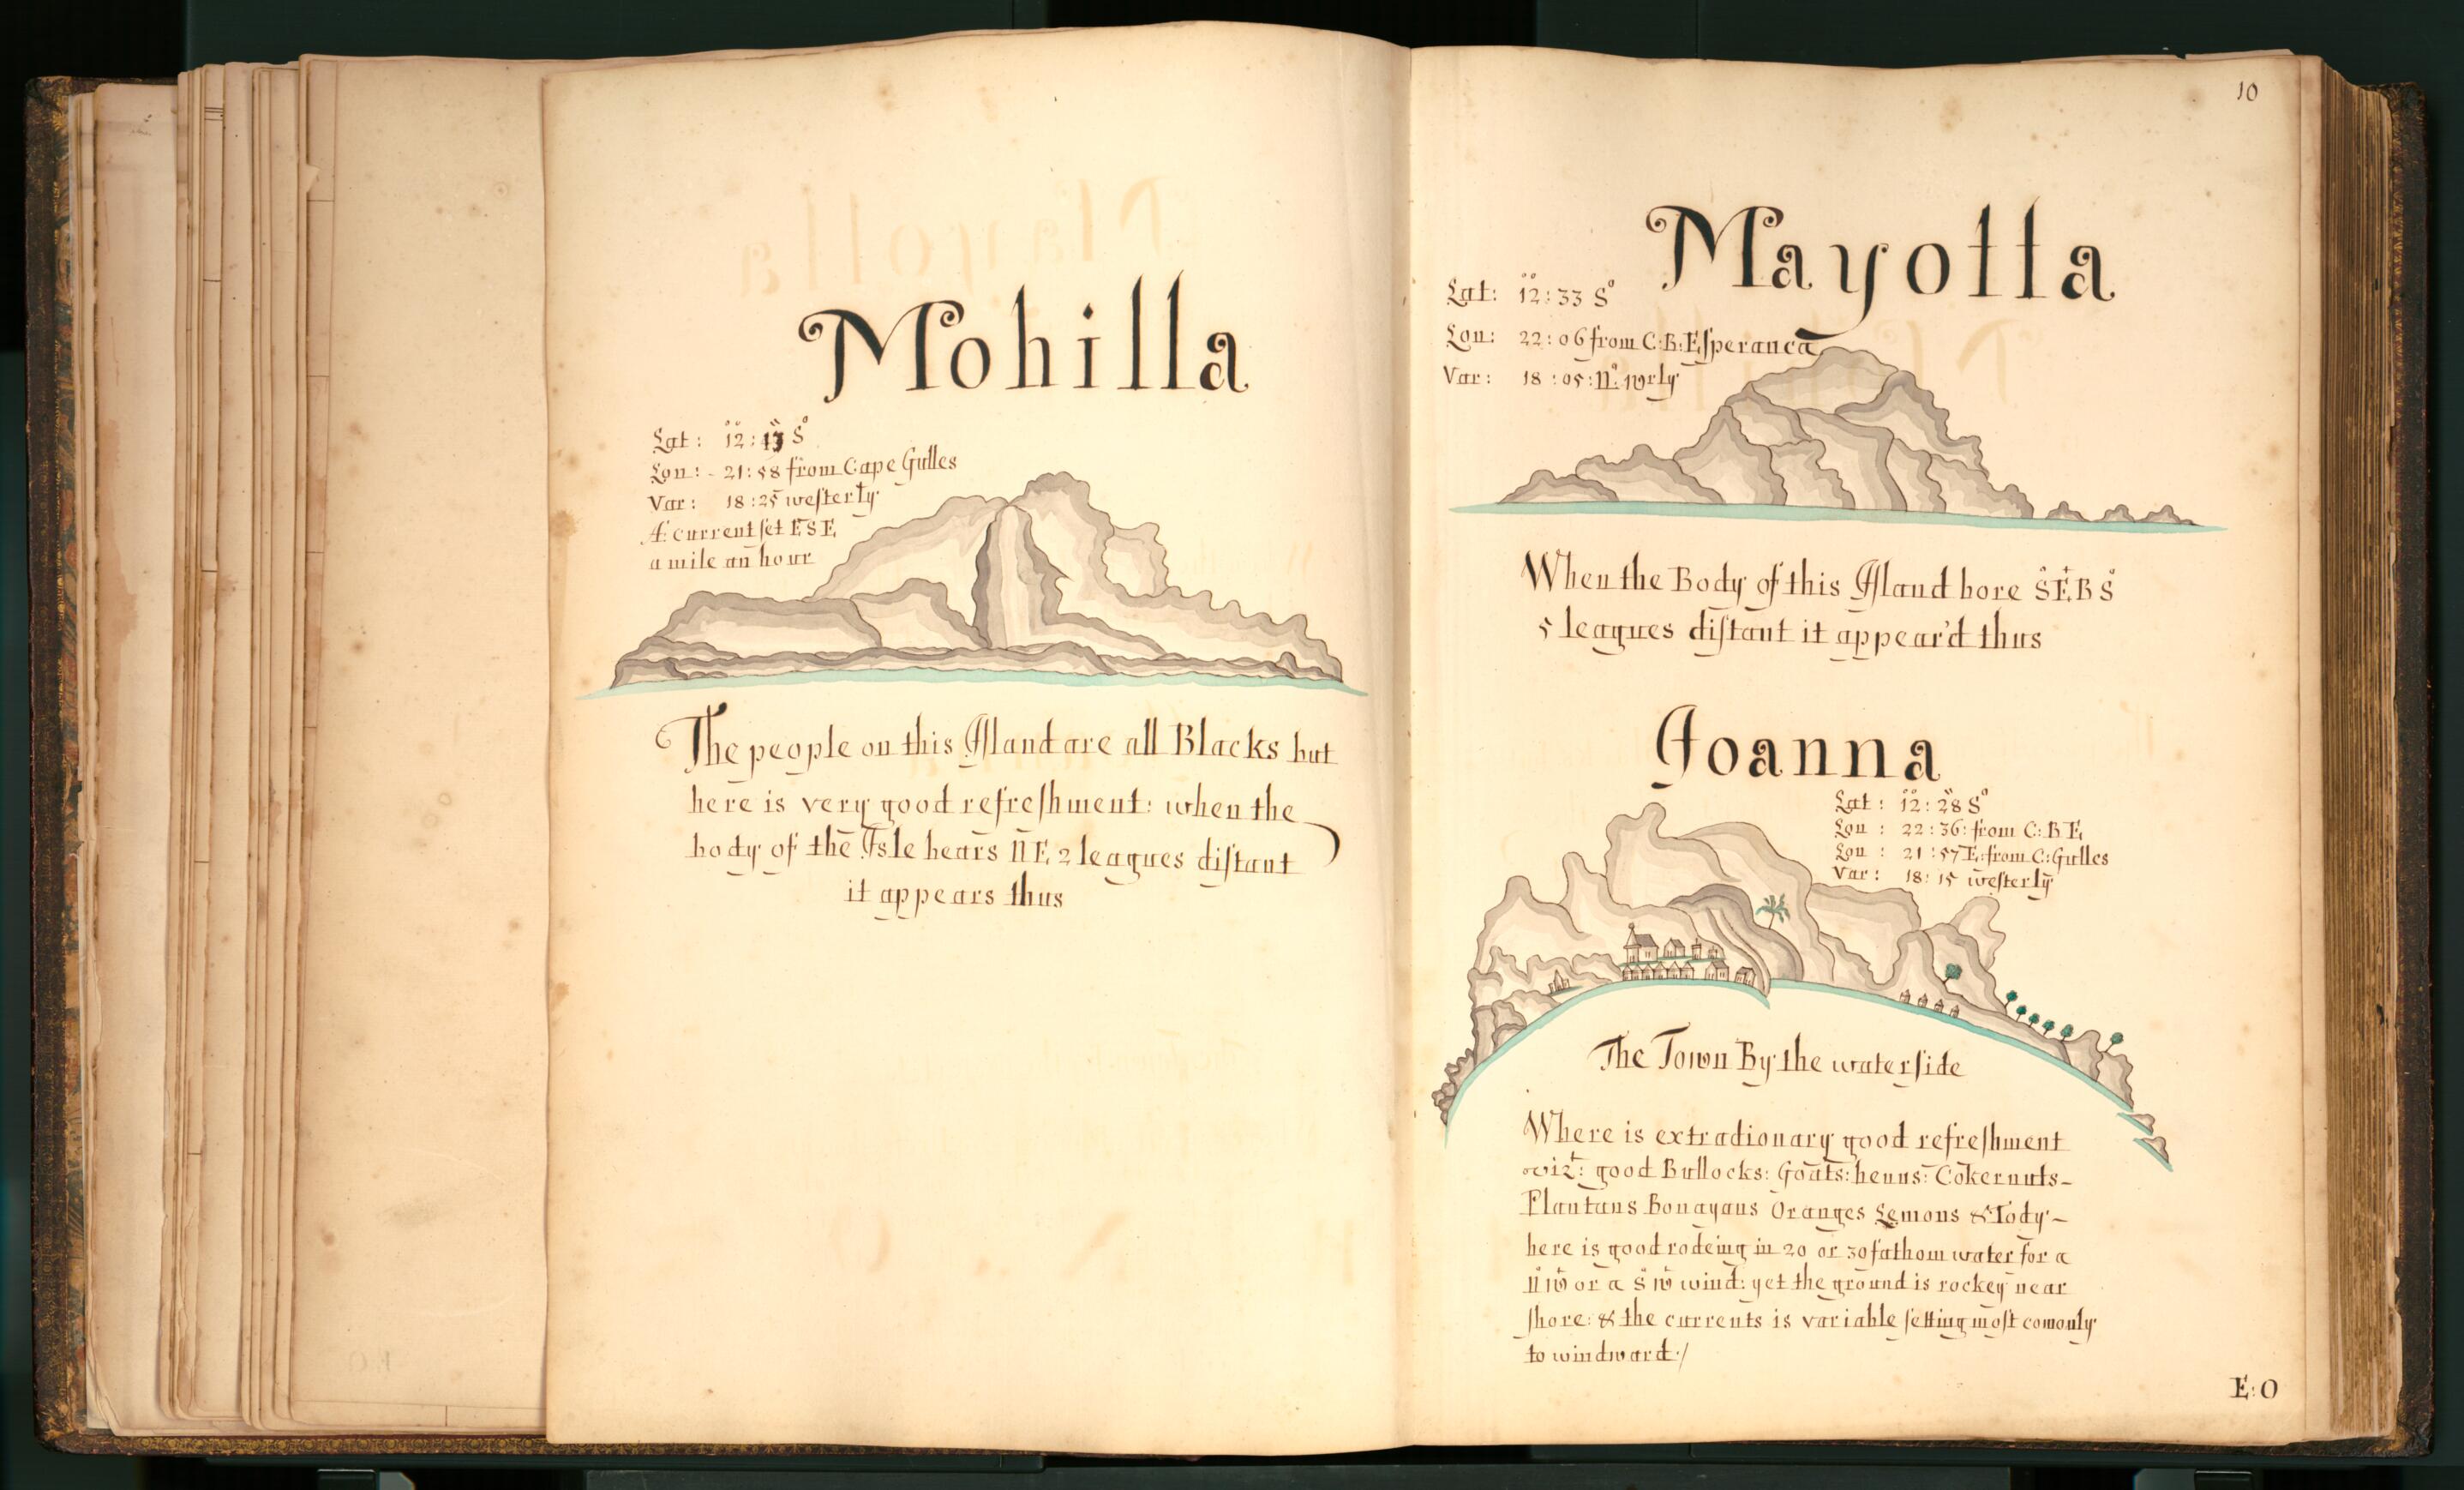 Mohilla
Lat: 12:43 S°
Lon: - 21:58 from Cape Gulles
Var: 18:25 westerly
A current set ESE
a mile an hour
The people on this Island are all Blacks but
here is very good refreshment: when the
body of the Isle bears NE 2 leagues distant
it appears thus
10
Mayotta
Lat: 12:33 S°
Lon: 22:06 from C:B:Esperanca
Var: 18:05:N° wrly
When the Body of this Island bore SEBS
5 leagues distant it appear'd thus
Joanna
Lat: 12:28 S°
Lon: 22:36: from C:BE
Lon: 21:57 E: from C:Gulles
Var: 18:15 westerly
The Town By the waterside
Where is extradionary good refreshment
vizt: good Bullocks: Goats: henns: Cokernuts-
Plantans Bonayans Oranges Lemons & Tody-
here is good rodeing in 20 or 30 fathom water for a
NW or a SW wind: yet the ground is rockey near
shore: & the currents is variable setting most comonly
to windward:/
E:O